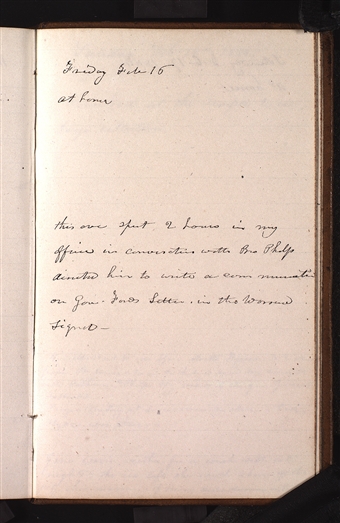 Friday Feb 16
at home
this eve spent 2 hours in my
office in conversation with Bro Phelps
directed him to write a communicati
on Gov. Fords Letter. in the Warsaw
Signal—